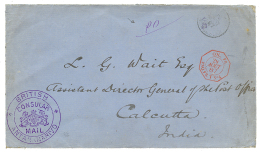 PD
L. G. Wait Esq
Assistant Director General of the Post Office
Calcutta
India
BRITISH
CONSULAR
MAIL
ANTANANARIVO